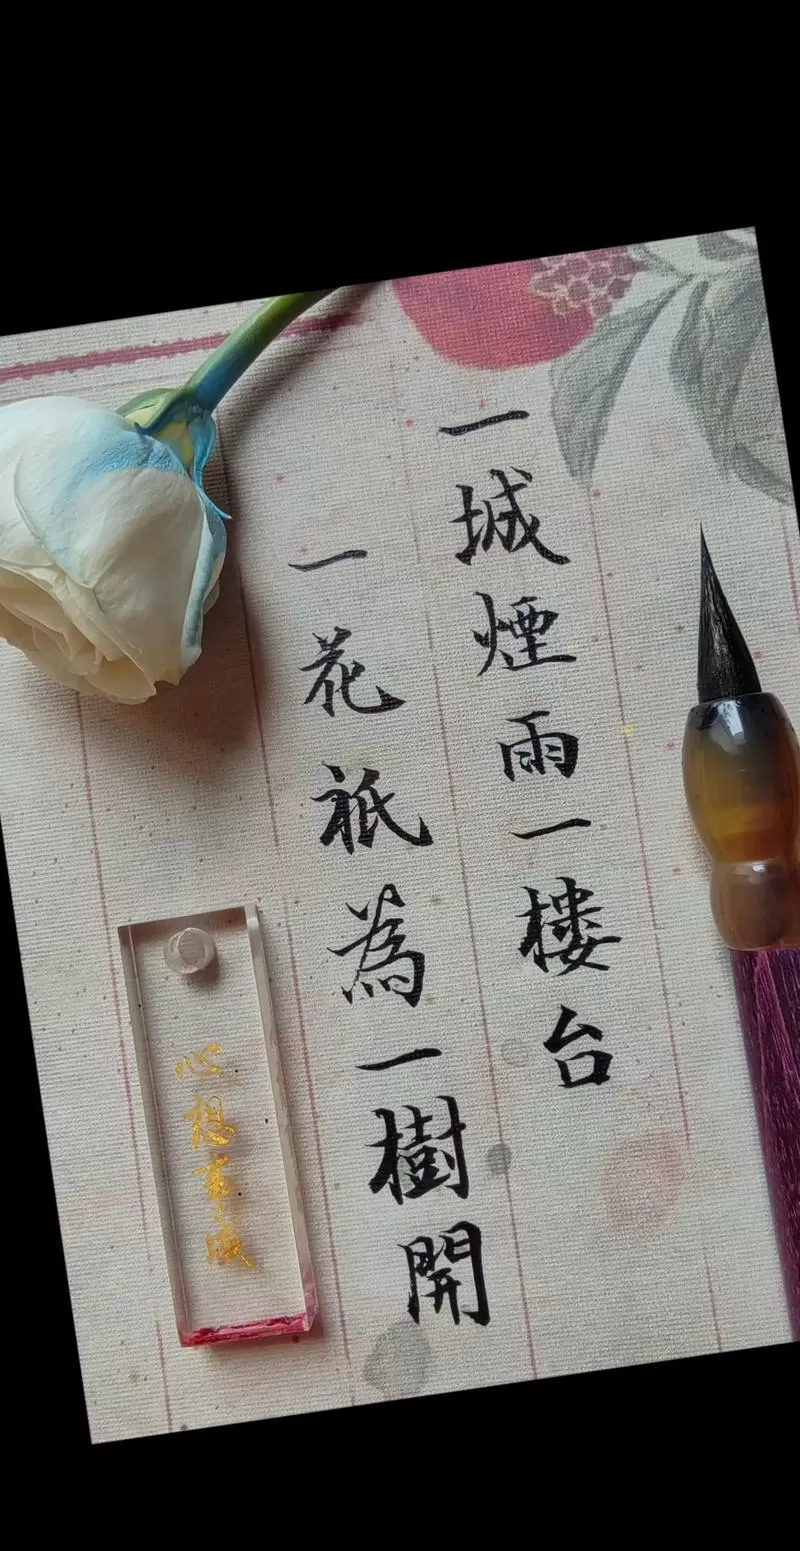 一城煙雨一楼台
一花祇為一樹開
心想事成